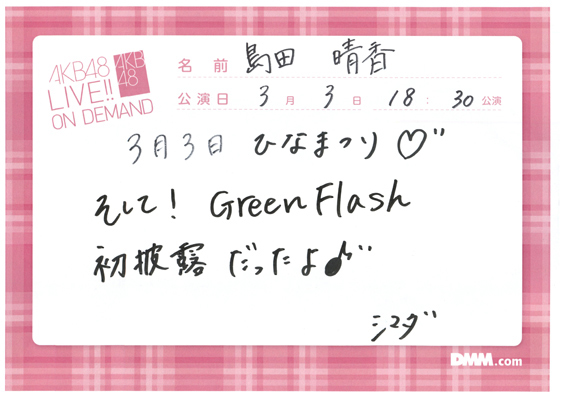 AKB48
LIVE!!
ON DEMAND
AKB
48
名前 島田 晴香
公演日 3月 3日 18:30公演
3月3日 ひなまつり♡"
そして! Green Flash
初披露 だったよ♪"
シマダ"
DMM.com